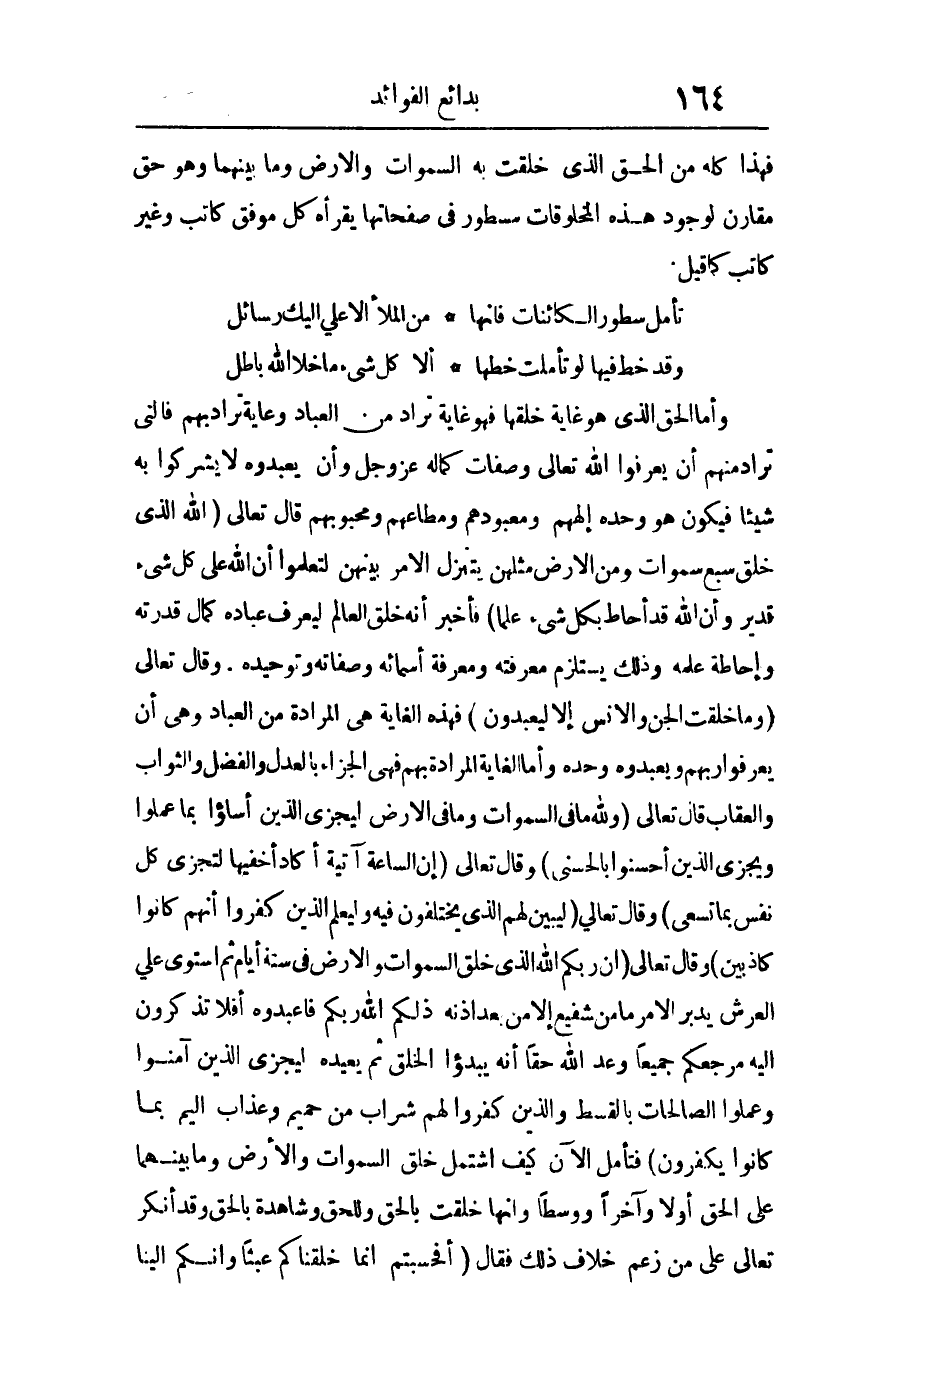 ١٦٤ بدائع الفوائد
فهذا كله من الحق الذى خلقت به السموات والارض وما بينهما وهو حق
مقارن لوجود هذه المخلوقات مسطور فى صفحاتها يقرأه كل موفق كاتب وغير
كاتب كما قيل .
تأمل سطور الكائنات فانها * من الملأ الاعلي اليك رسائل
وقد خط فيها لو تأملت خطها * ألا كل شىء ماخلا الله باطل
وأما الحق الذى هو غاية خلقها فهو غاية تراد من العباد وغاية تراد بهم فالتى
تراد منهم أن يعرفوا الله تعالى وصفات كماله عز وجل وأن يعبدوه لا يشركوا به
شيئا فيكون هو وحده إلههم ومعبودهم ومطاعهم ومحبوبهم قال تعالى ( الله الذى
خلق سبع سموات ومن الارض مثلهن يتنزل الامر بينهن لتعلموا أن الله على كل شىء
قدير وأن الله قد أحاط بكل شىء علما) فأخبر أنه خلق العالم ليعرف عباده كمال قدرته
وإحاطة علمه وذلك يستلزم معرفته ومعرفة أسمائه وصفاته وتوحيده . وقال تعالى
(وماخلقت الجن والانس إلا ليعبدون ) فهذه الغاية هى المرادة من العباد وهى أن
يعرفوا ربهم ويعبدوه وحده وأما الغاية المرادة بهم فهى الجزاء بالعدل والفضل والثواب
والعقاب قال تعالى (ولله مافى السموات ومافى الارض ليجزى الذين أساؤا بما عملوا
ويجزى الذين أحسنوا بالحسنى) وقال تعالى (إن الساعة آتية أكاد أخفيها لتجزى كل
نفس بما تسعى) وقال تعالي(ليبين لهم الذى يختلفون فيه وليعلم الذين كفروا أنهم كانوا
كاذبين) وقال تعالى(ان ربكم الله الذى خلق السموات والارض فى ستة أيام ثم استوى علي
العرش يدبر الامر مامن شفيع إلا من بعد اذنه ذلكم الله ربكم فاعبدوه أفلا تذكرون
اليه مرجعكم جميعاً وعد الله حقاً أنه يبدؤا الخلق ثم يعيده ليجزى الذين آمنوا
وعملوا الصالحات بالقسط والذين كفروا لهم شراب من حميم وعذاب اليم بما
كانوا يكفرون) فتأمل الآن كيف اشتمل خلق السموات والأرض وما بينهما
على الحق أولا وآخراً ووسطاً وانها خلقت بالحق وللحق وشاهدة بالحق وقد أنكر
تعالى على من زعم خلاف ذلك فقال ( أفحسبتم انما خلقناكم عبثاً وانكم الينا